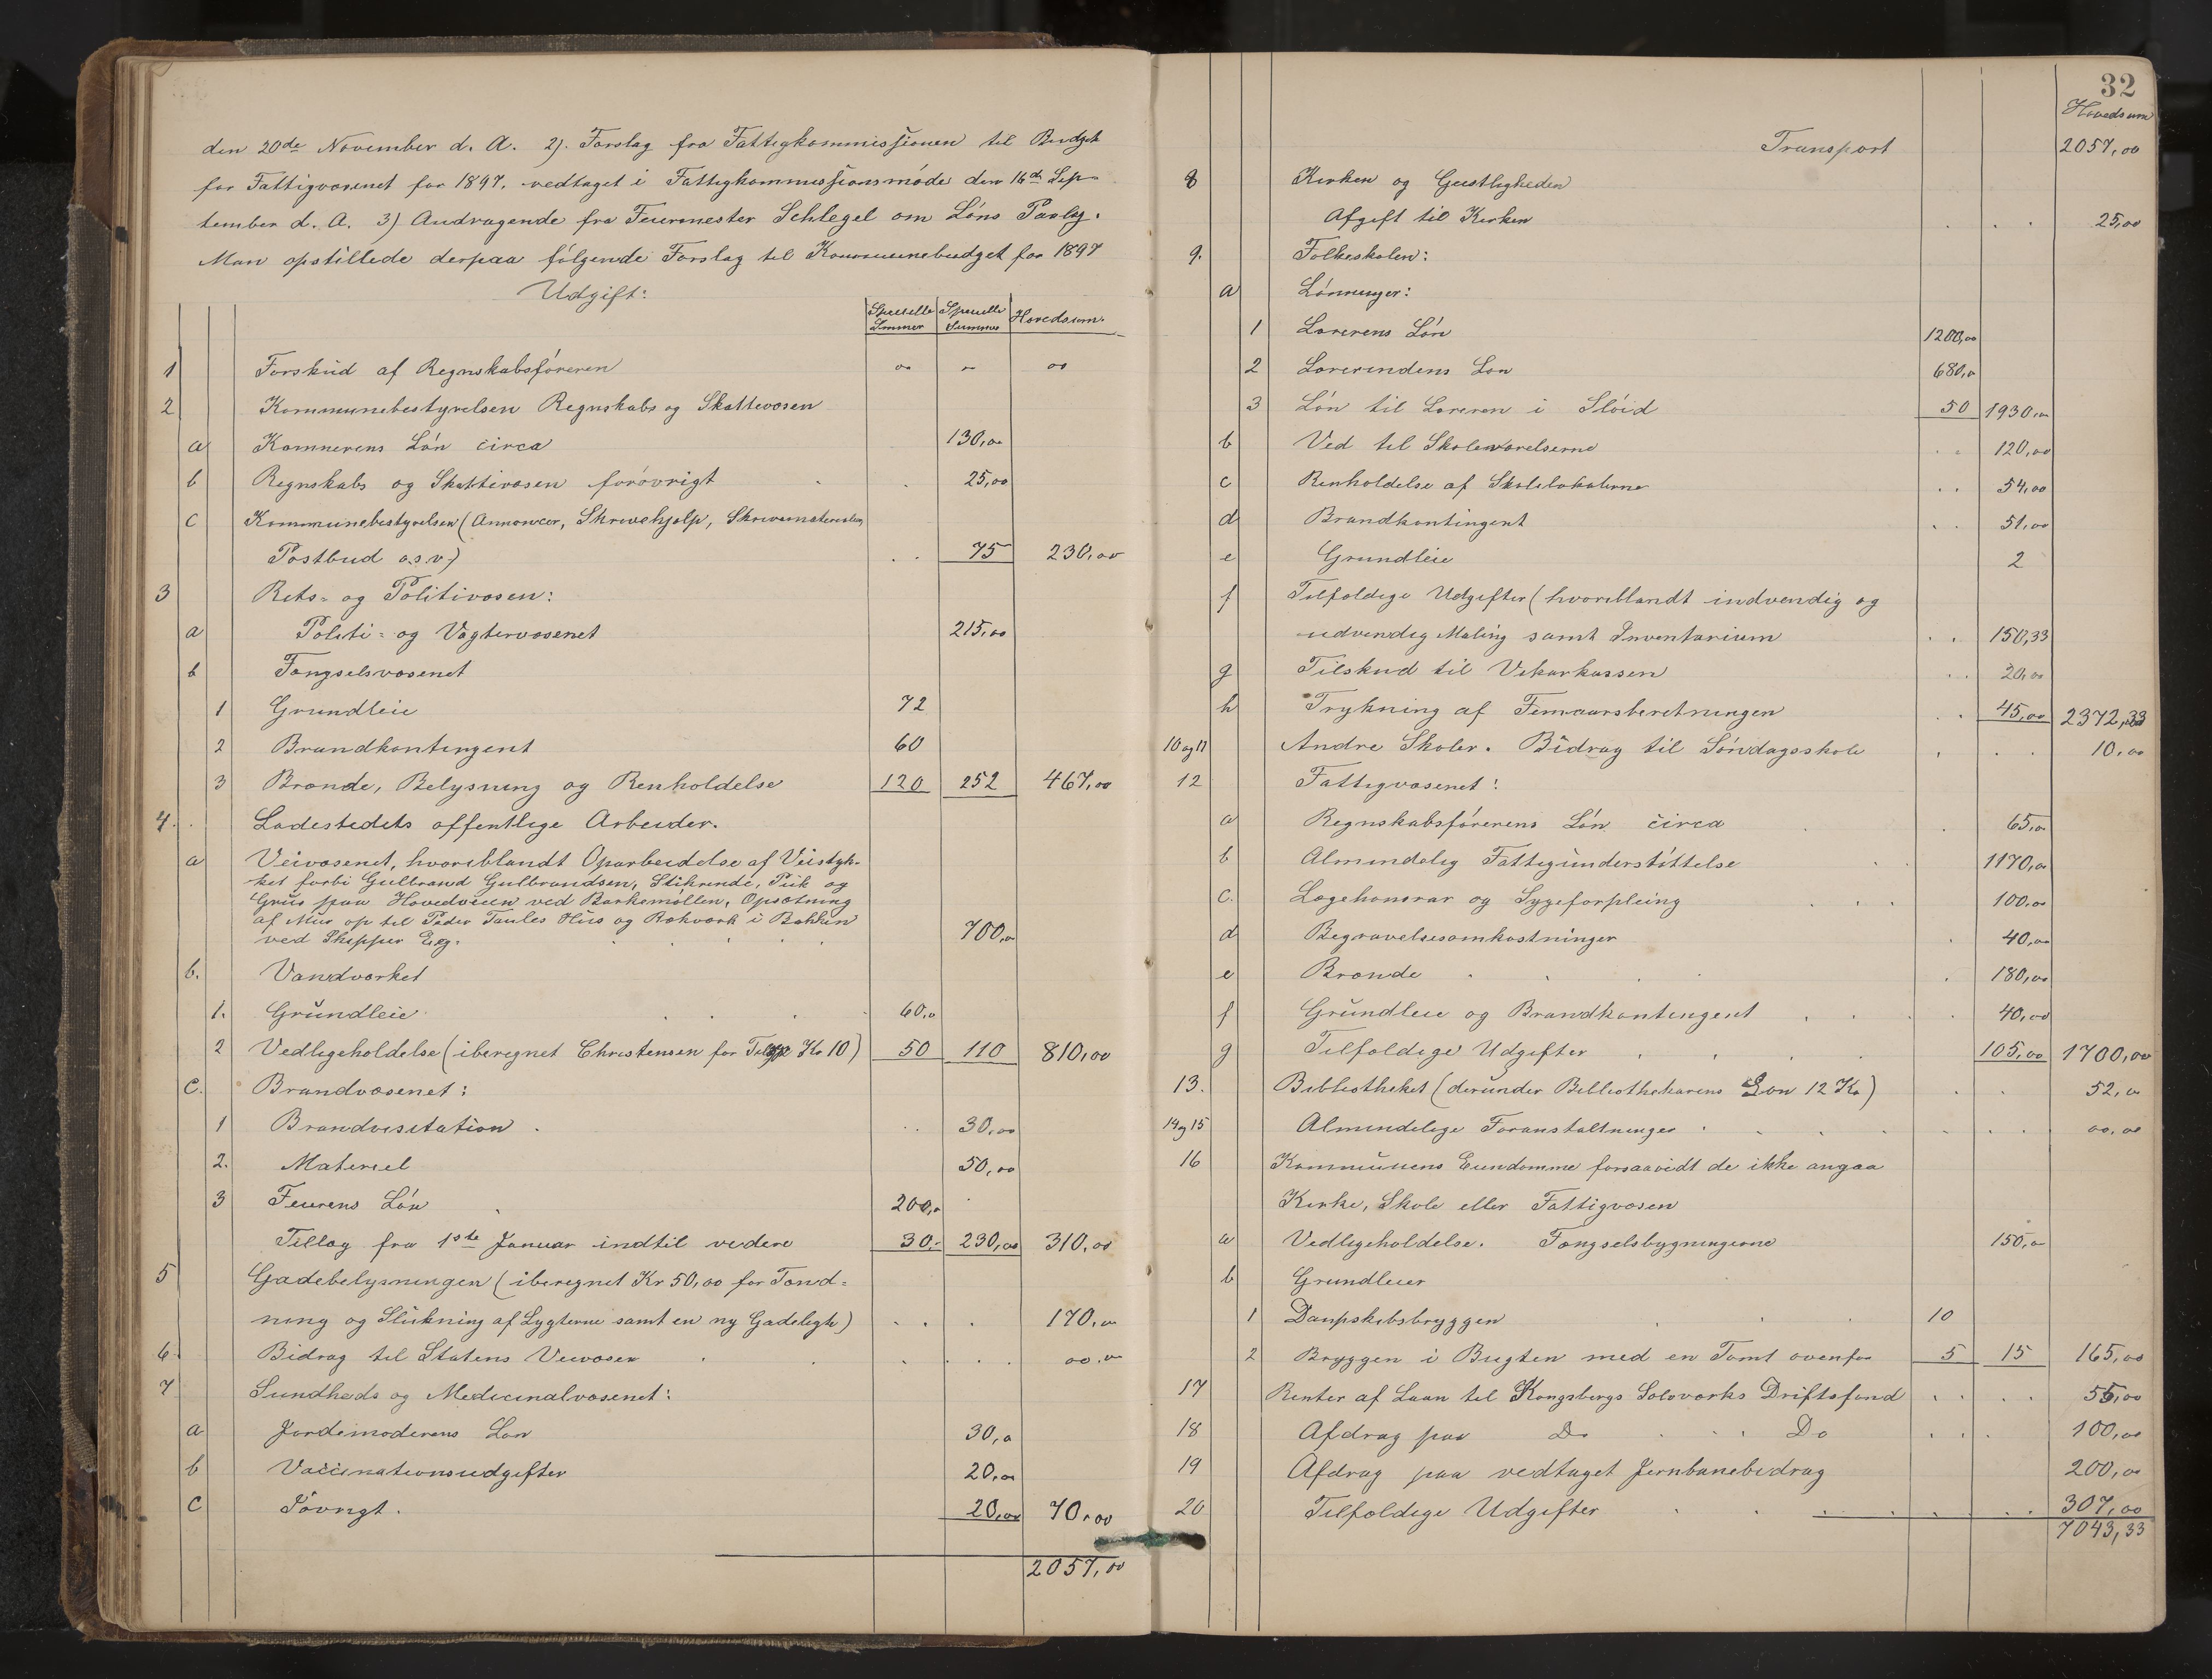 den 20de November d. A. 2). Forslag fra Fattigkommissionen til Budget
for Fattigvæsenet for 1897, vedtaget i Fattigkommissionsmøde den 16de Sep-
tember d. A. 3) Andragende fra Feiermester Schlegel om Løns Paalæg.
Man opstillede derpaa følgende Forslag til Kommunebudget for 1897
Udgift:
Specielle Summer Specielle Summer Hovedsum.
1 Forskud af Regnskabsføreren 00 00 00
2 Kommunebestyrelsen Regnskabs og Skattevæsen
a Kæmnerens Løn circa 130,00
b Regnskabs og Skattevæsen forøvrigt 25,00
c Kommunebestyrelsen (Annoncer, Skrivehjælp, Skrivematerialier,
Postbud o.s.v.) 75 230,00
3 Rets- og Politivæsen:
a Politi- og Vægtervæsenet 215,00
b Fængselsvæsenet
1 Grundleie 72
2 Brandkontingent 60
3 Brænde, Belysning og Renholdelse 120 252 467,00
4. Ladestedets offentlige Arbeider.
a Veivæsenet, hvoriblandt Oparbeidelse af Veistyk-
ket forbi Gulbrand Gulbrandsen, Stikrende, Puk og
Grus paa Hovedveien ved Barkemøllen, Opsætning
af Mur op til Peder Taules Hus og Rækværk i Bakken
ved Skipper Eeg. 700,00
b. Vandværket
1. Grundleie 60,0
2 Vedligeholdelse (iberegnet Christensen for Tilsyn Kr 10) 50 110 810,00
c. Brandvæsenet:
1 Brandvisitation 30,00
2. Materiel 50,00
3 Feierens Løn 200,0
Tillæg fra 1ste Januar indtil videre 30,- 230,00 310,00
5 Gadebelysningen (iberegnet Kr 50,00 for Tænd-
ning og Slukning af Lygterne samt en ny Gadeligte) 170,00
6. Bidrag til Statens Veivæsen 00,00
7 Sundheds og Medicinalvæsenet:
a Jordemoderens Løn 30,0
b Vaccinationsudgifter 20,00
c Iøvrigt. 20,00 70,00
2057,00
32
Hovedsum
Transport 2057,00
8 Kirken og Geistligheden
Afgift til Kirken 25,00
9. Folkeskolen:
a Lønninger:
1 Lærerens Løn 1200,00
2 Lærerindens Løn 680,0
3 Løn til Læreren i Sløid 50 1930,00
b Ved til Skoleværelserne 120,00
c Renholdelse af Skolelokalerne 54,00
d Brandkontingent 51,00
e Grundleie 2
f Tilfældige Udgifter (hvoriblandt indvendig og
udvendig Maling samt Inventarium 150,33
g Tilskud til Vikarkassen 20,00
h Trykning af Femaarsberetningen 45,00 2372,33
10 og 11 Andre Skoler. Bidrag til Søndagsskole 10,00
12 Fattigvæsenet:
a Regnskabsførerens Løn circa 65,00
b Almindelig Fattigunderstøttelse 1170,00
c. Lægehonorar og Sygeforpleing 100,00
d Begravelsesomkostninger 40,00
e Brænde 180,00
f Grundleie og Brandkontingent 40,00
g Tilfældige Udgifter 105,00 1700,00
13. Bibliotheket (derunder Bibliothekarens Løn 12 Kr) 52,00
14 og 15 Almindelige Foranstaltninger 00,00
16 Kommunens Eiendomme forsaavidt de ikke angaa
Kirke, Skole eller Fattigvæsen
a Vedligeholdelse. Fængselsbygningerne 150,00
b Grundleier
1 Dampskibsbryggen 10
2 Bryggen i Bugten med en Tomt ovenfor 5 15 165,00
17 Renter af Laan til Kongsbergs Sølvværks Driftsfond 55,00
18 Afdrag paa Do Do 100,00
19 Afdrag paa vedtaget Jernbanebidrag 200,00
20 Tilfældige Udgifter 307,00
7043,33